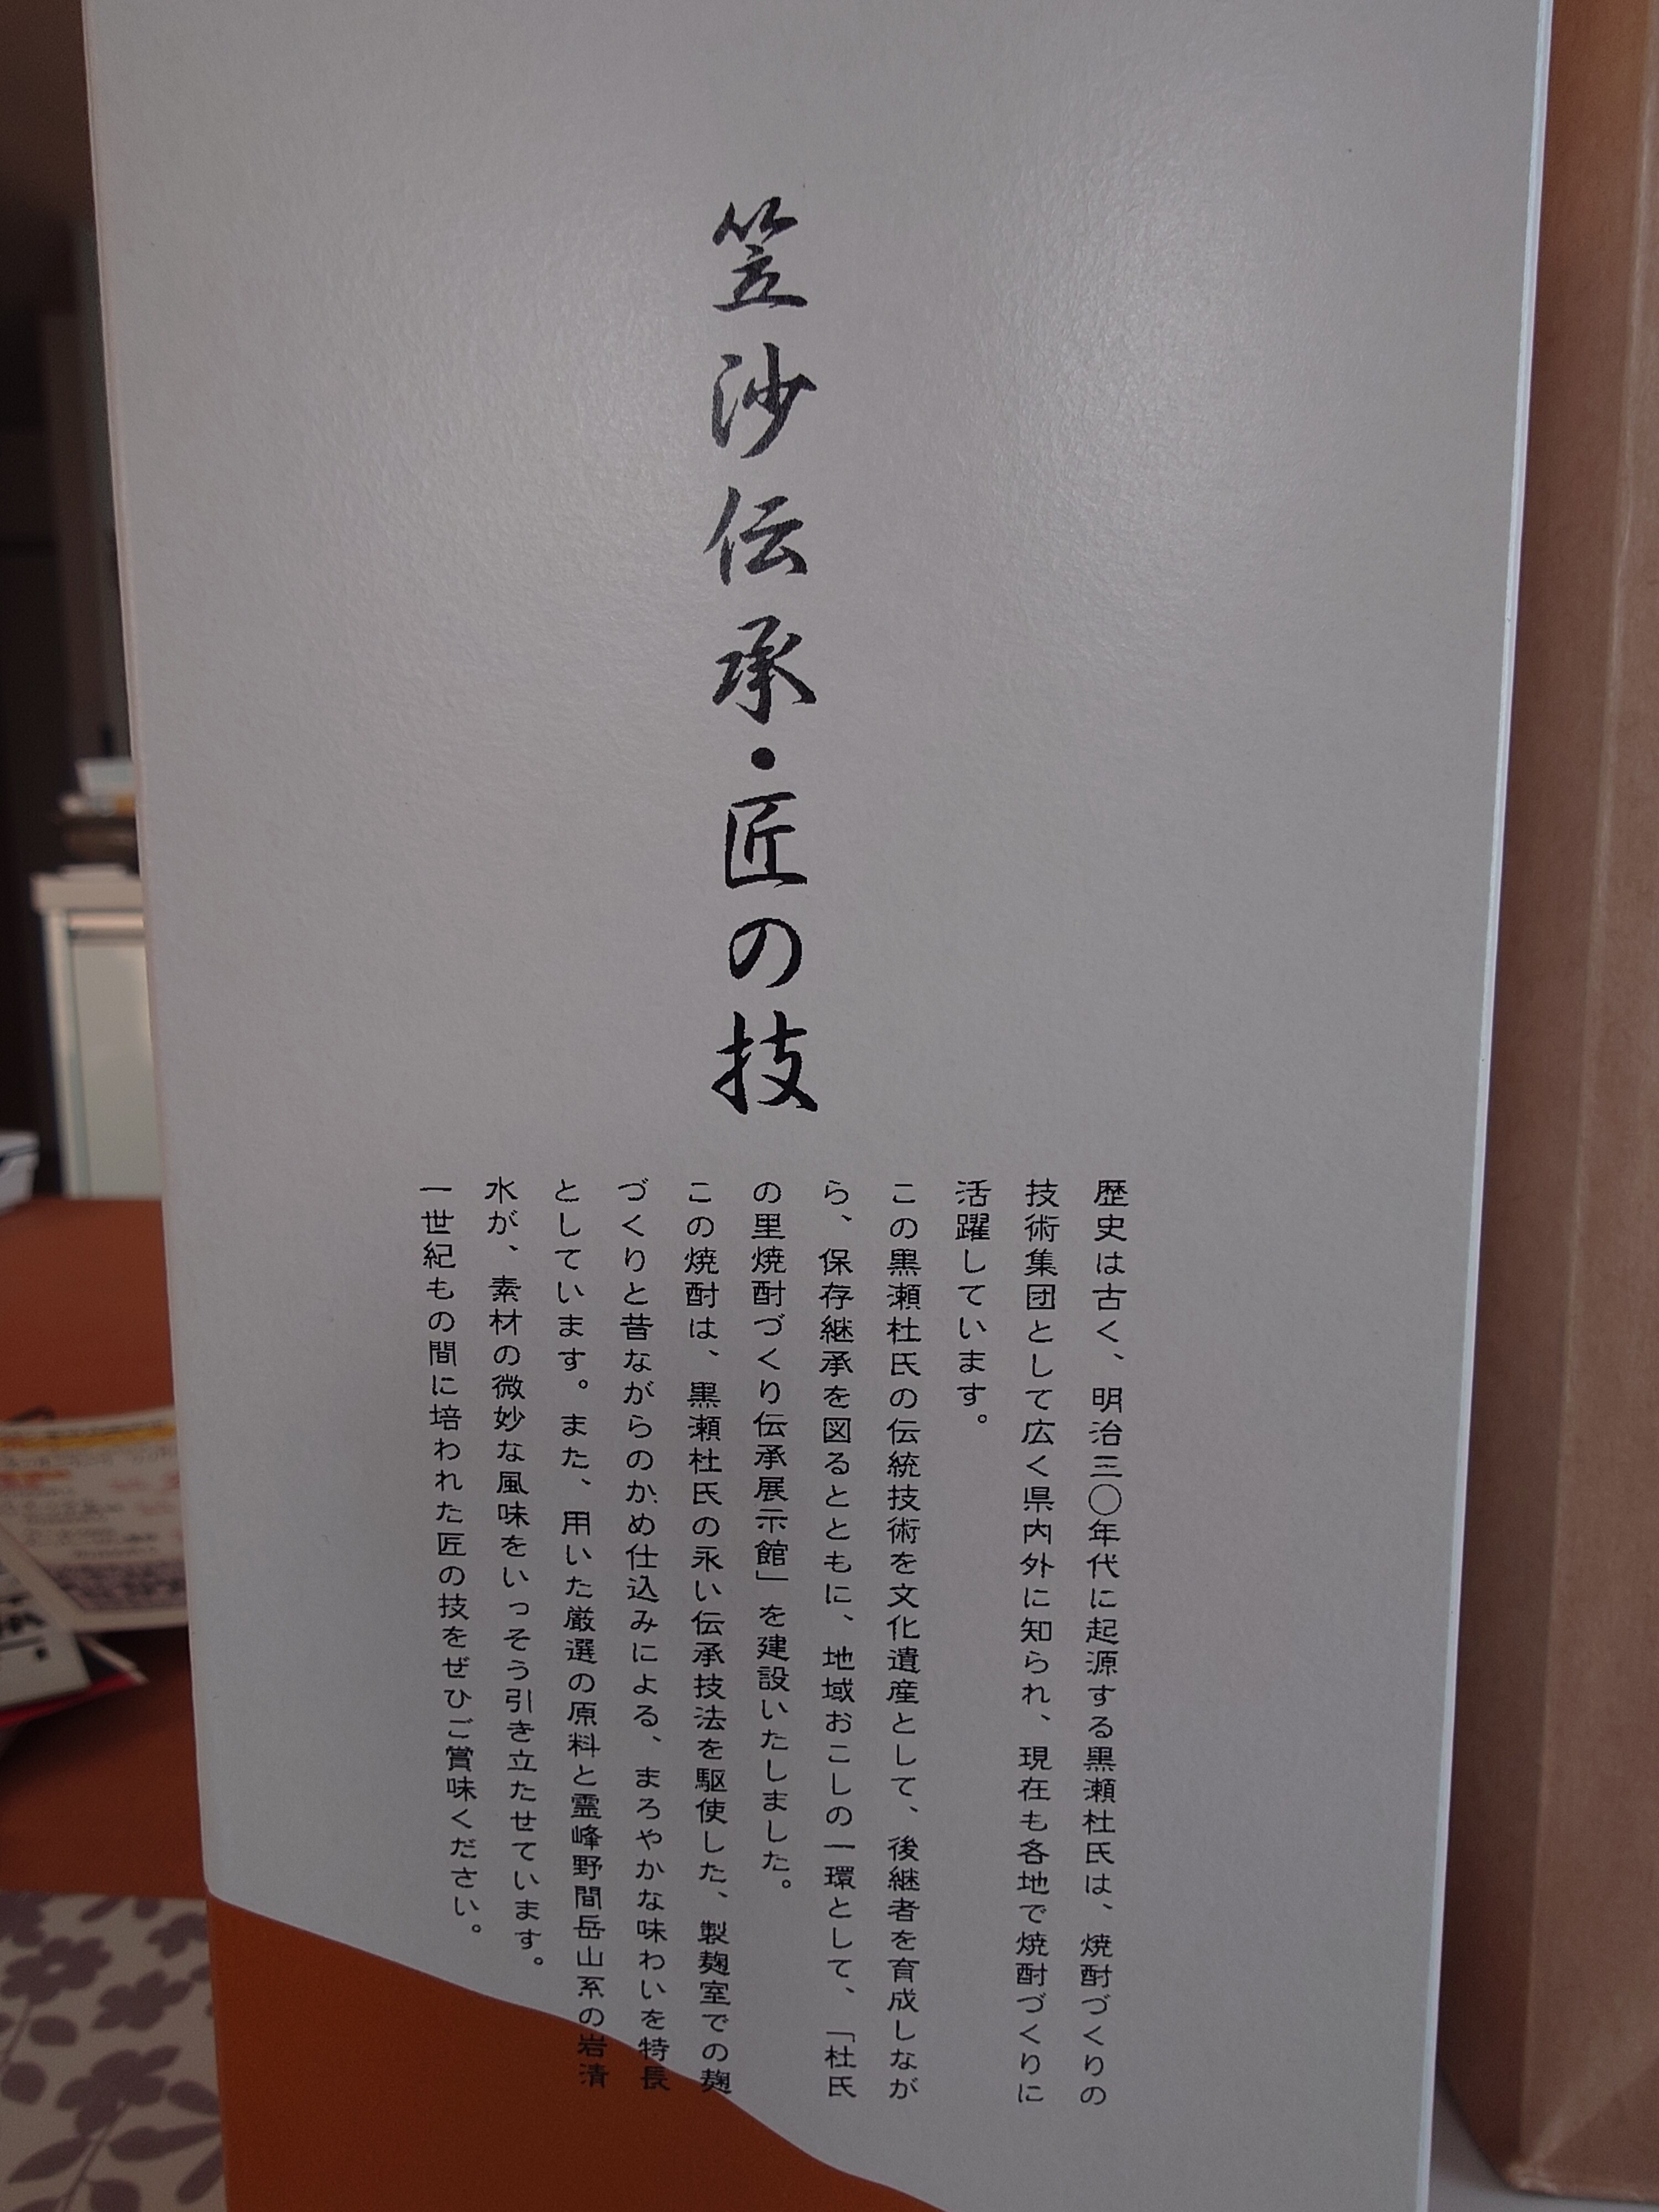 笠沙伝承・匠の技
歴史は古く、明治三〇年代に起源する黒瀬杜氏は、焼酎づくりの
技術集団として広く県内外に知られ、現在も各地で焼酎づくりに
活躍しています。
この黒瀬杜氏の伝統技術を文化遺産として、後継者を育成しなが
ら、保存継承を図るとともに、地域おこしの一環として、「杜氏
の里焼酎づくり伝承展示館」を建設いたしました。
この焼酎は、黒瀬杜氏の永い伝承技法を駆使した、製麹室での麹
づくりと昔ながらのかめ仕込みによる、まろやかな味わいを特長
としています。また、用いた厳選の原料と霊峰野間岳山系の岩清
水が、素材の微妙な風味をいっそう引き立たせています。
一世紀もの間に培われた匠の技をぜひご賞味ください。